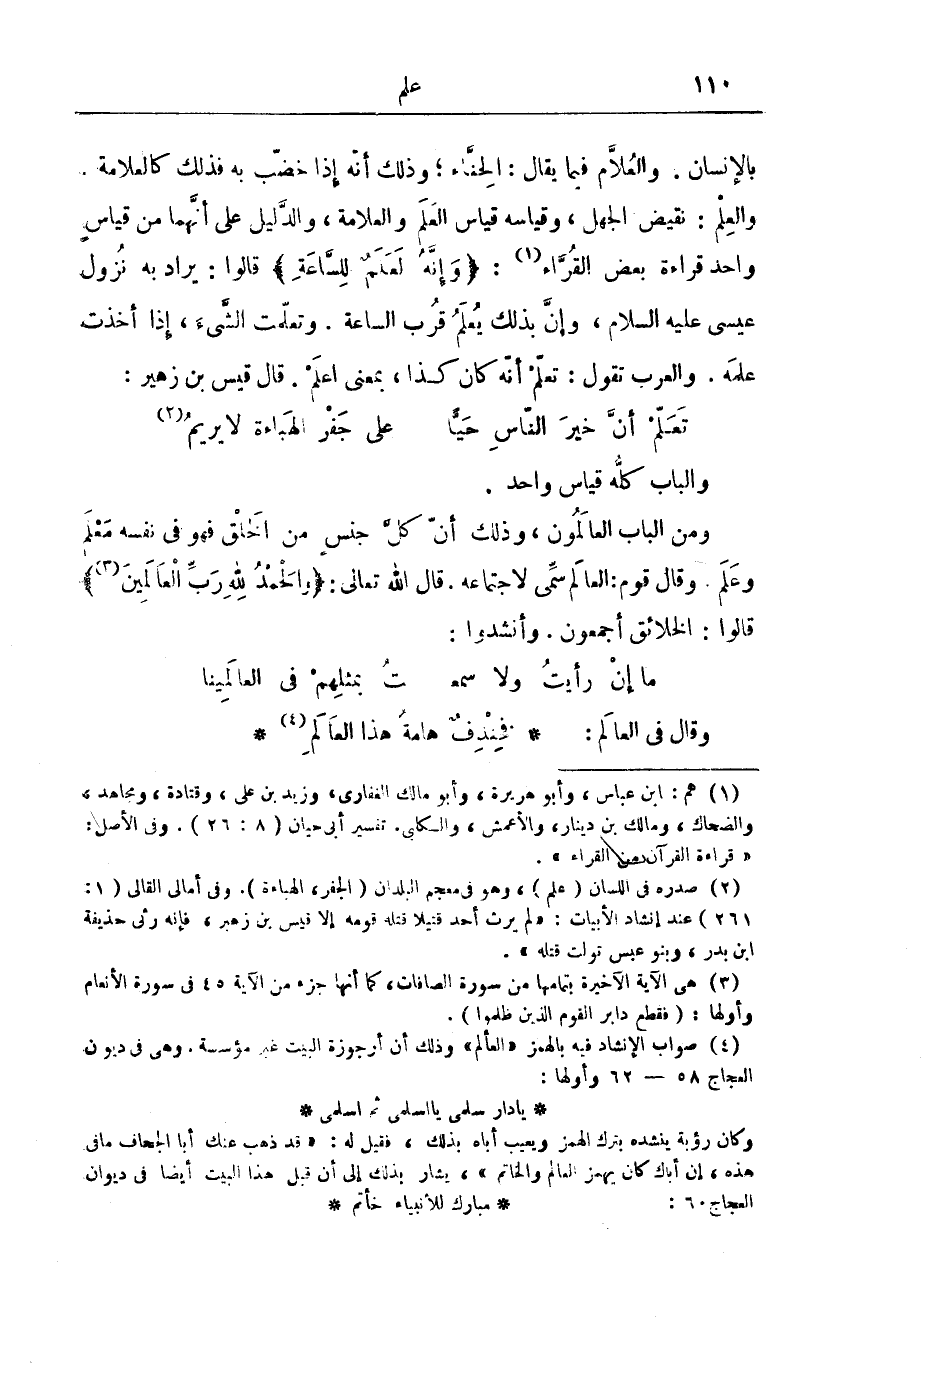 ١١٠ علم
بالإنسان . والعُلاَّم فيما يقال : الِحنَّاء ؛ وذلك أنّه إذا خضّب به فذلك كالعلامة .
والعِلْم : نقيض الجهل ، وقياسه قياس العَلَم والعلامة ، والدَّليل على أنَّهما من قياسٍ
واحد قراءة بعض القُرَّاء(١) : ﴿ وَإِنَّهُ لَعَلَمٌ لِلسَّاعَةِ ﴾ قالوا : يراد به نُزول
عيسى عليه السلام ، وإنَّ بذلك يُعلَمُ قُرب الساعة . وتعلّمت الشَّىءَ ، إذا أخذت
علمَه . والعرب تقول : تعلّمْ أنّه كان كذا ، بمعنى اعلَمْ . قال قيس بن زهير :
تَعَلّمْ أنَّ خيرَ النّاسِ حَيًّا على جَفْرِ الهَباءة لا يريمُ(٢)
والباب كلُّه قياس واحد .
ومن الباب العالَمُون ، وذلك أنّ كلَّ جنسٍ من الَخلْق فهو فى نفسه مَعْلَم
وعَلَم . وقال قوم: العالَم سمِّى لاجتماعه . قال الله تعالى : ﴿ وَالحَمْدُ لِلهِ رَبِّ الْعَالَمِينَ(٣)﴾
قالوا : الخلائق أجمعون . وأنشدوا :
ما إنْ رأيتُ ولا سمعـ ـتُ بمثلِهِمْ فى العالَمِينا
وقال فى العالَم : * فخِنْدِفٌ هامةُ هذا العَالَمِ(٤) *
(١) هم : ابن عباس ، وأبو هريرة ، وأبو مالك الغفارى، وزيد بن على ، وقتادة ، ومجاهد ،
والضحاك ، ومالك بن دينار، والأعمش ، والكلبى. تفسير أبى حيان ( ٨ : ٢٦ ) . وفى الأصل:
« قراءة القرآن بعض القراء » .
(٢) صدره فى اللسان ( علم ) ، وهو فى معجم البلدان ( الجفر، الهباءة ). وفى أمالى القالى ( ١ :
٢٦١ ) عند إنشاد الأبيات : « لم يرث أحد قتيلا قتله قومه إلا قيس بن زهير ، فإنه رثى حذيفة
ابن بدر ، وبنو عبس تولت قتله » .
(٣) هى الآية الأخيرة بتمامها من سورة الصافات، كما أنها جزء من الآية ٤٥ فى سورة الأنعام
وأولها : ( فقطع دابر القوم الذين ظلموا ) .
(٤) صواب الإنشاد فيه بالهمز «العألم» وذلك أن أرجوزة البيت غير مؤسسة . وهى فى ديوان
العجاج ٥٨ — ٦٢ وأولها :
* يادار سلمى يااسلمى ثم اسلمى *
وكان رؤبة ينشده بترك الهمز ويعيب أباه بذلك ، فقيل له : « قد ذهب عنك أبا الجحاف مافى
هذه ، إن أباك كان يهمز العالم والخاتم » ، يشار بذلك إلى أن قبل هذا البيت أيضا فى ديوان
العجاج ٦٠ : * مبارك للأنبياء خأتم *